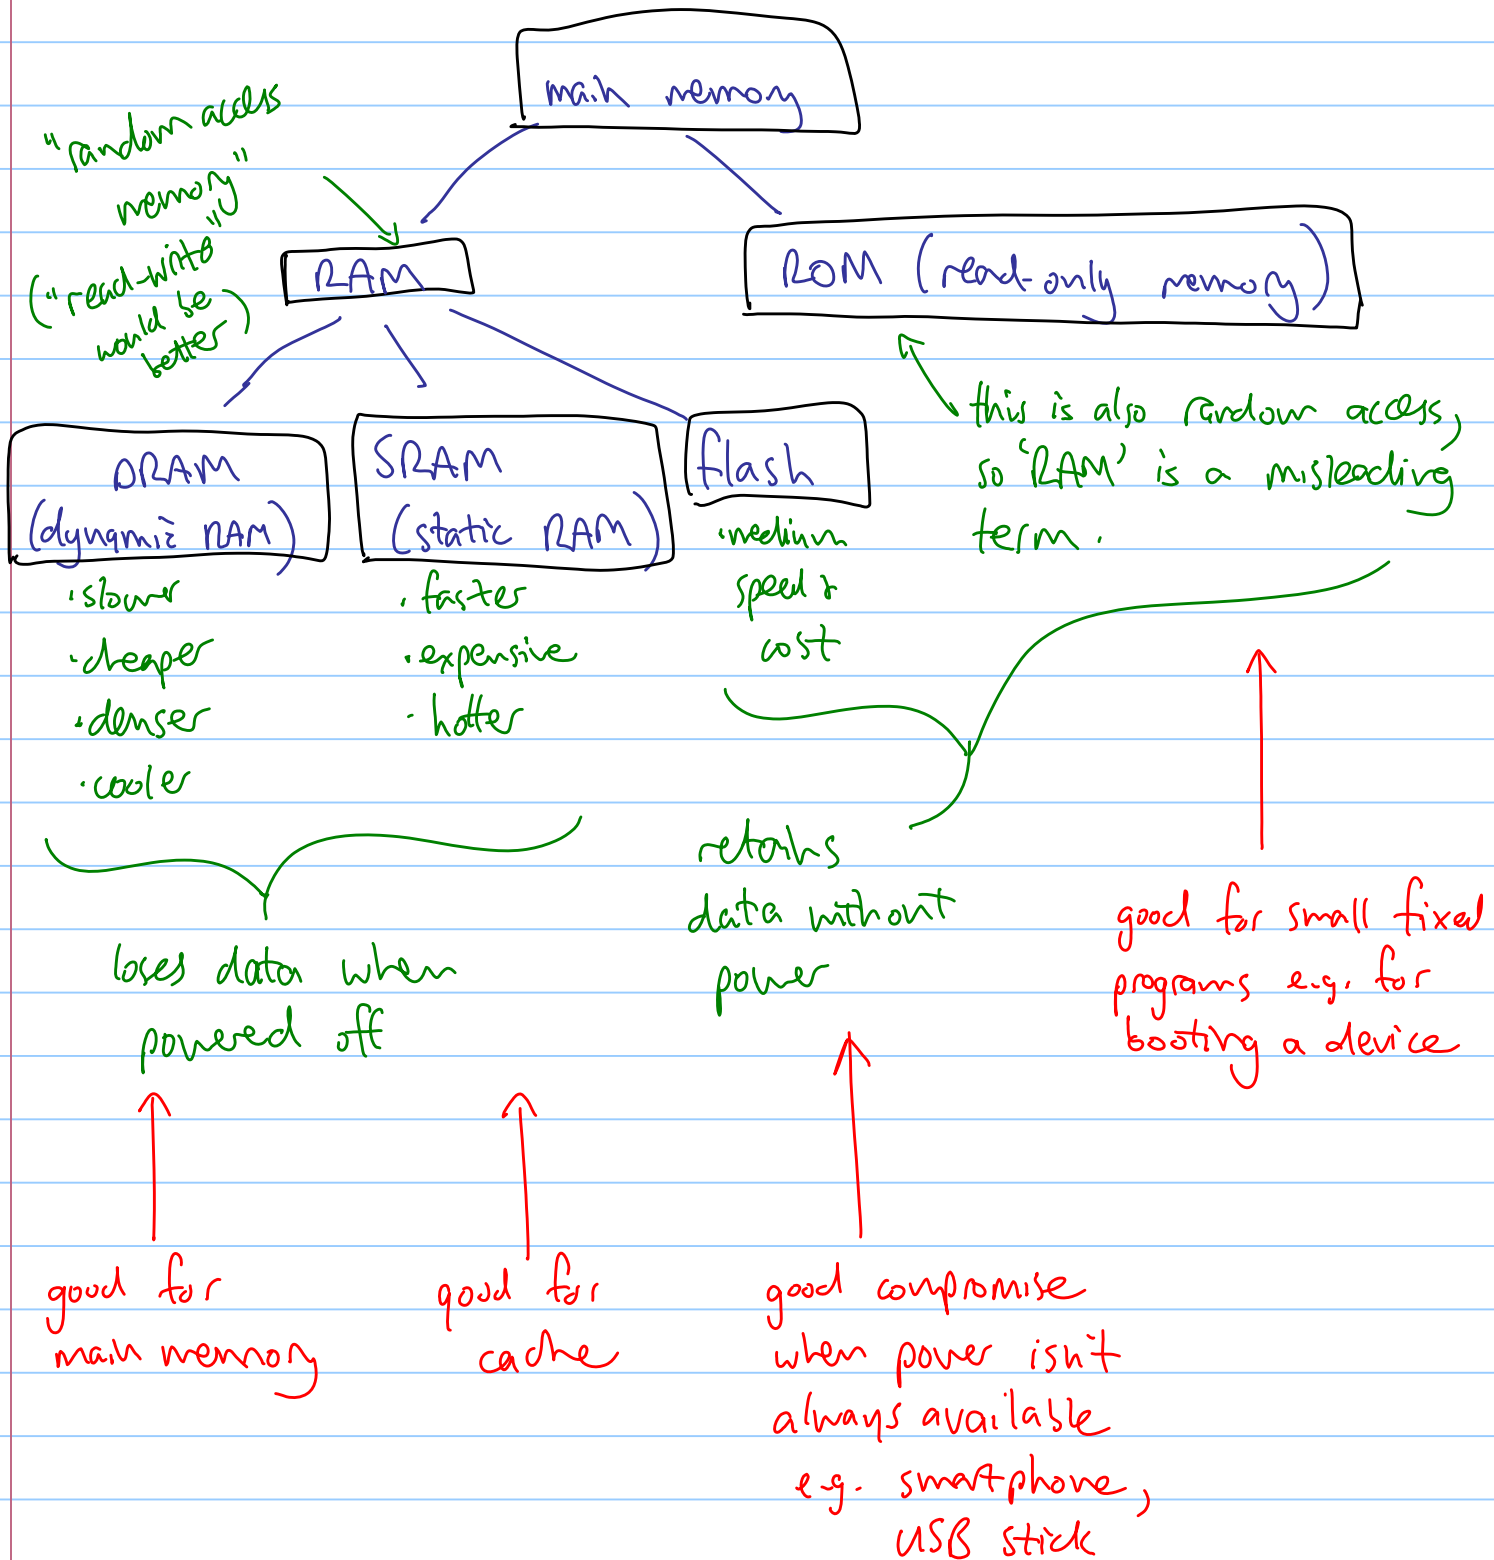 main memory
"random access
memory"
("read-write"
would be
better)
RAM
ROM (read-only memory)
this is also random access,
so 'RAM' is a misleading
term.
DRAM
(dynamic RAM)
· slower
· cheaper
· denser
· cooler
SRAM
(static RAM)
· faster
· expensive
· hotter
flash
· medium
speed &
cost
loses data when
powered off
retains
data without
power
good for small fixed
programs e.g. for
booting a device
good for
main memory
good for
cache
good compromise
when power isn't
always available
e.g. smartphone,
USB stick